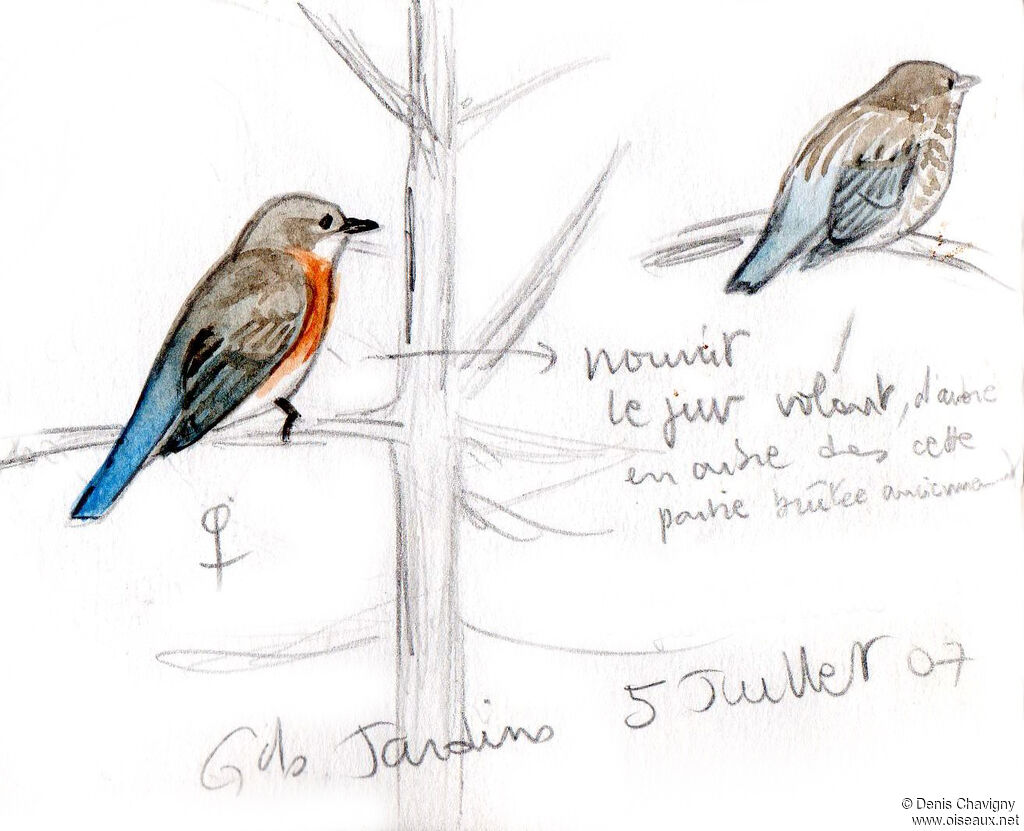 nourrit
le juv volant, d'arbre
en arbre des cette
partie brûlée ancienne
♀
Gds Jardins 5 Juillet 07
© Denis Chavigny
www.oiseaux.net